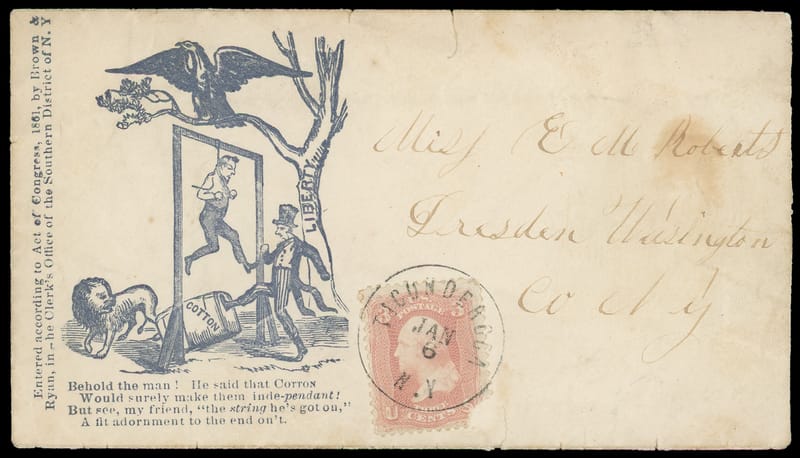 Entered according to Act of Congress, 1861, by Brown &
Ryan, in the Clerk's Office of the Southern District of N. Y
LIBERTY
COTTON
Behold the man! He said that COTTON
Would surely make them inde-pendant!
But see, my friend, "the string he's got on,"
A fit adornment to the end on't.
Miss E M Roberts
Dresden Wasington
Co N Y
TICUNDEROGA
JAN
6
N.Y
POSTAGE
U
CENTS